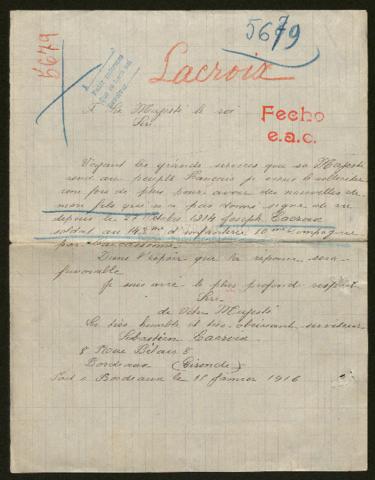 5679
5679
Lacroix
A Sa Majesté le roi
Sire
Fecho
e.a.c.
Voyant les grands services que sa Majesté
rend au peuple Français je viens
une fois de plus pour avoir des nouvelles de
mon fils qui n'a pas donné signe de vie
depuis le 27 1914 Joseph Lacroix
soldat au 143me d'infanterie 10me Compagnie
par Carcassonne
Dans l'espoir que la reponse sera
favorable
Je suis avec le plus profond respect
Sire
de Votre Majesté
Le très humble et très obeissant serviteur
Sébastien Lacroix
8 Rue Bélais 8
Bordeaux (Gironde)
Fait à Bordeaux le 15 janvier 1916